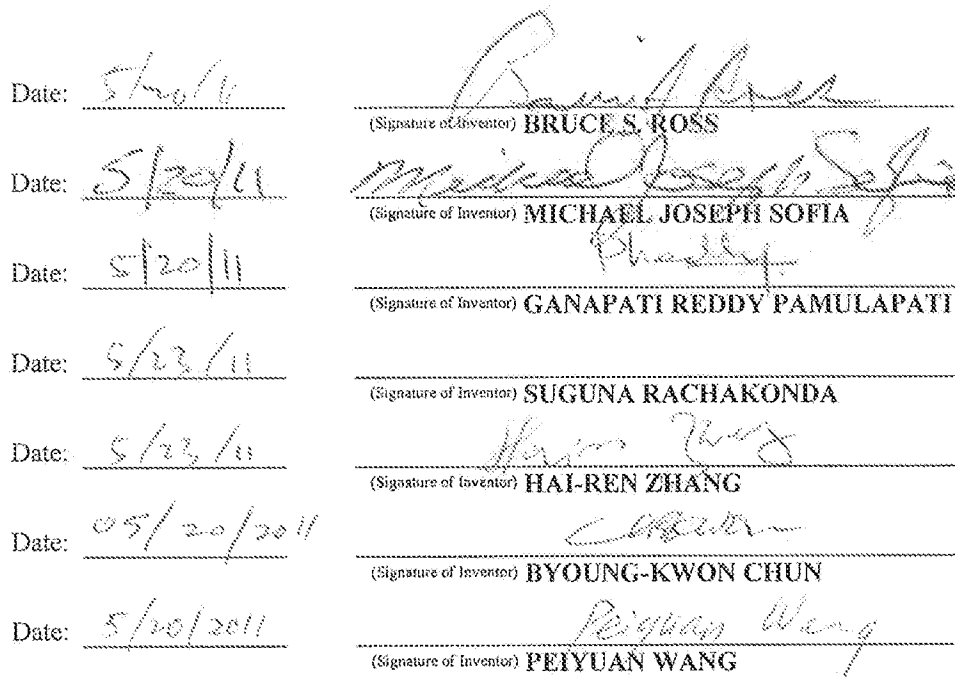 Date: 5/20/11
(Signature of Inventor) BRUCE S. ROSS
Date: 5/20/11 Michael Joseph Sofia
(Signature of Inventor) MICHAEL JOSEPH SOFIA
Date: 5/20/11
(Signature of Inventor) GANAPATI REDDY PAMULAPATI
Date: 5/23/11
(Signature of Inventor) SUGUNA RACHAKONDA
Date: 5/23/11
(Signature of Inventor) HAI-REN ZHANG
Date: 05/20/2011
(Signature of Inventor) BYOUNG-KWON CHUN
Date: 5/20/2011 Peiyuan Wang
(Signature of Inventor) PEIYUAN WANG